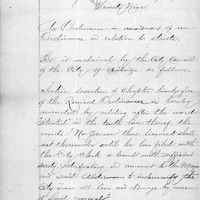 Seventy Nine
An Ordinance in amendment of an
Ordinance in relation to streets.
Be it ordained by the City Council
of the City of Cambridge as follows.
Section seventeen of Chapter twenty five
of the Revised Ordinances is hereby
amended by adding after the word
in the tenth line thereof the
words "No person thus licensed shall
not thereunder until he has filed with
the City Clerk a bond with sufficient
surety satisfactory in amount to the Mayor
and said Aldermen to indemnify the
City from all loss and damage by reason
of said